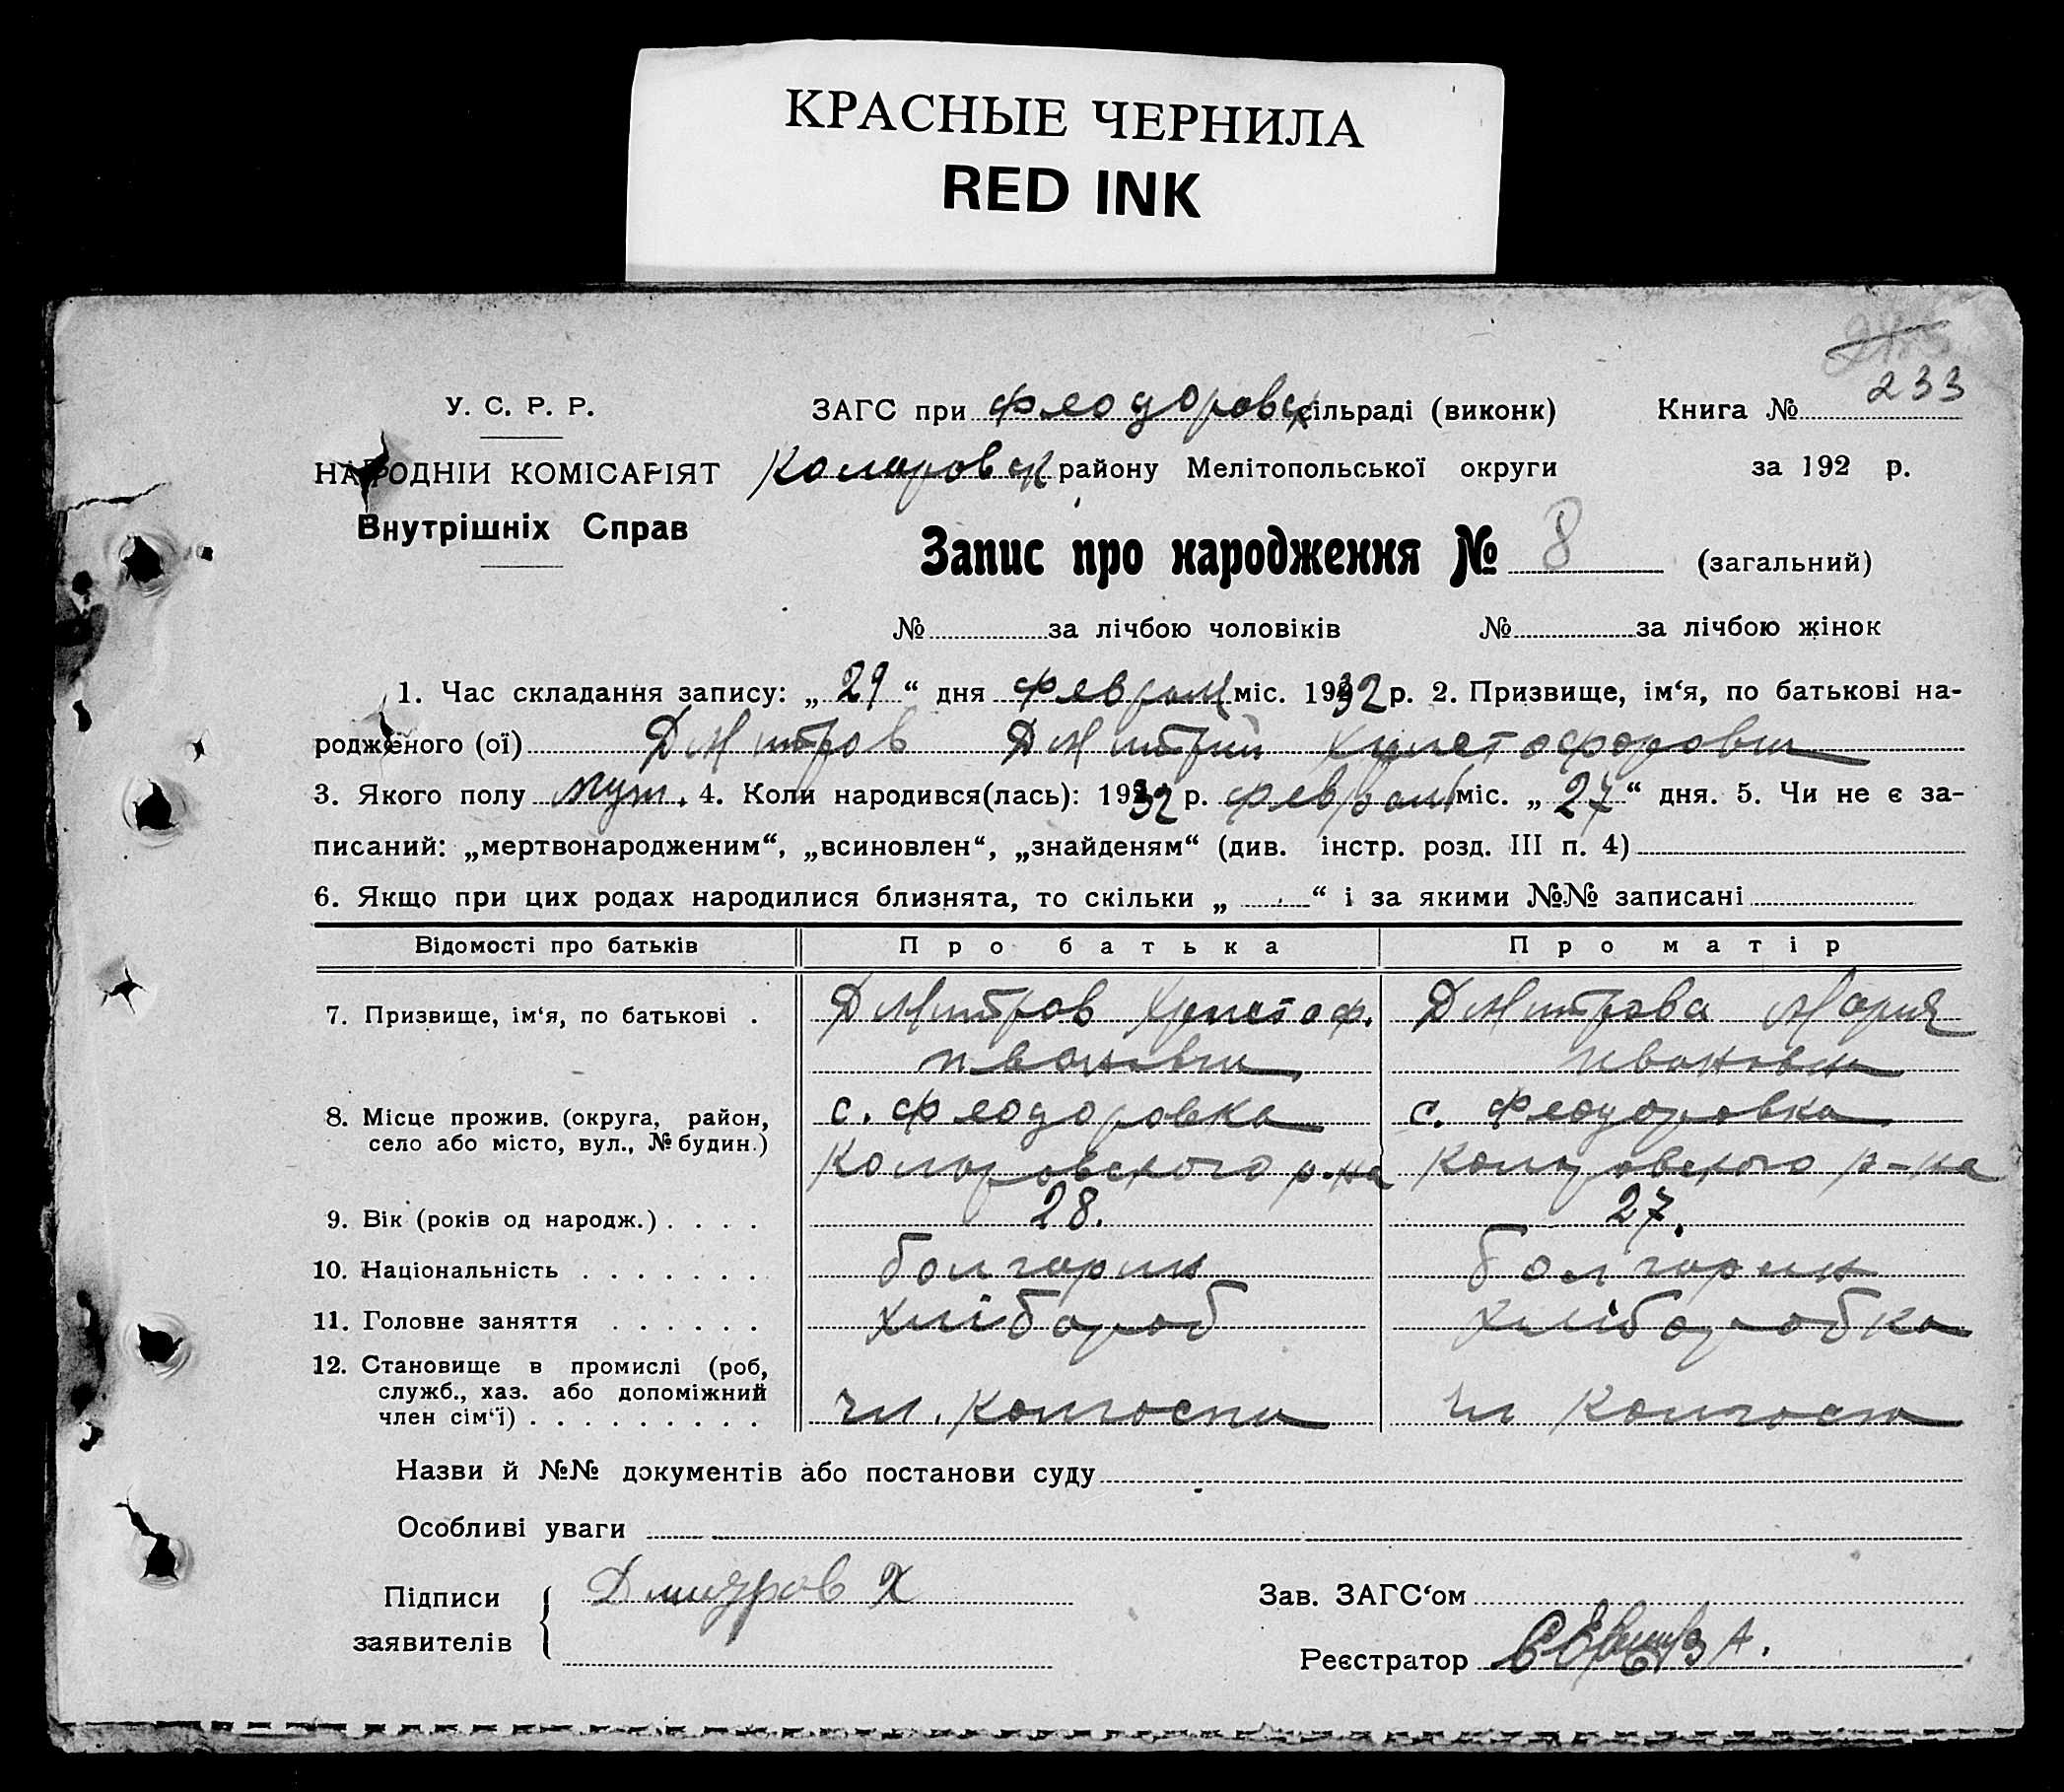 КРАСНЫЕ ЧЕРНИЛА
RED INK
233
У. С. Р. Р.
ЗАГС при Феодоровск сільраді (виконк)
Книга №
НАРОДНІЙ КОМІСАРІЯТ
Коларовск району Мелітопольської округи
за 192 р.
Внутрішніх Справ
Запис про народження № 8 (загальний)
№ за лічбою чоловіків № за лічбою жінок
1. Час складання запису: „ 29 “ дня феврал міс. 1932 р. 2. Призвище, ім‘я, по батькові на-
родженого (ої) Дмитров Дмитрий Христофорович
3. Якого полу муж. 4. Коли народився(лась): 1932 р. феврал міс. „ 27 “ дня. 5. Чи не є за-
писаний: „мертвонародженим“, „всиновлен“, „знайденям“ (див. інстр. розд. III п. 4)
6. Якщо при цих родах народилися близнята, то скільки „ “ і за якими №№ записані
Відомості про батьків
Про батька
Про матір
7. Призвище, ім‘я, по батькові .
Дмитров Христоф.
Иванович
Дмитрова Мария
Ивановна
8. Місце прожив. (округа, район,
село або місто, вул., № будин.)
с. Феодоровка
Коларовского р-на
с. Феодоровка
Коларовского р-на
9. Вік (років од народж.) . . . .
28.
27.
10. Національність . . . . . . .
болгарин
болгарин
11. Головне заняття . . . . . .
хлібороб
хліборобка
12. Становище в промислі (роб,
служб., хаз. або допоміжний
член сім‘ї) . . . . . . . . .
чл. колгоспа
чл колгоспа
Назви й №№ документів або постанови суду
Особливі уваги
Підписи
заявителів
Дмитров Х
Зав. ЗАГС‘ом
Реєстратор